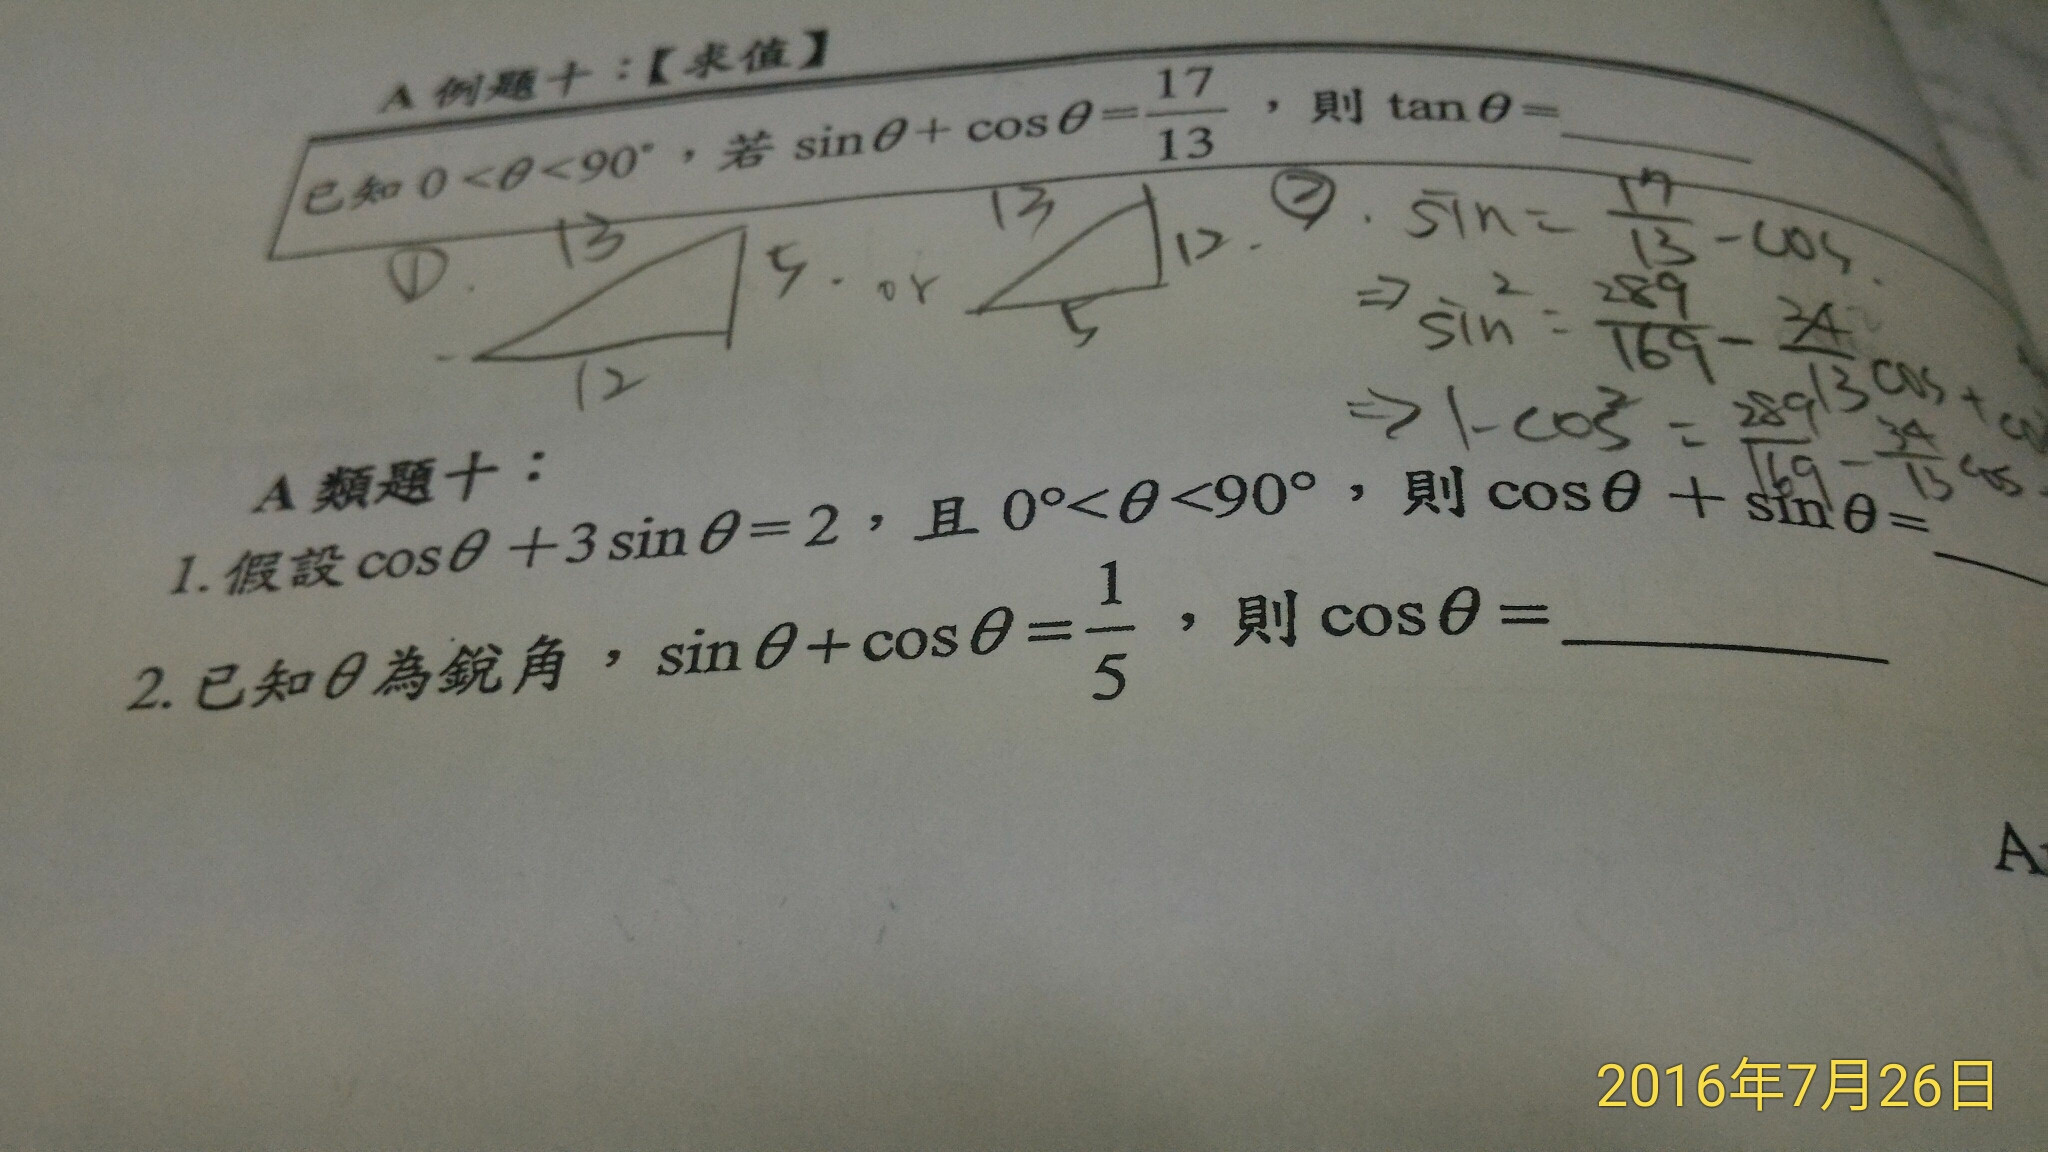 A 例題十：【求值】
已知 0<θ<90°，若 sinθ+cosθ=17/13，則 tanθ=____
① 13 5 12 or 13 12 5
② sin = 17/13 - cos
⇒ sin² = 289/169 - 34/13 cos +
⇒ 1 - cos² = 289/169 - 34/13 cos
A 類題十：
1. 假設 cosθ+3sinθ=2，且 0°<θ<90°，則 cosθ+sinθ=____
2. 已知θ為銳角，sinθ+cosθ=1/5，則 cosθ=____
2016年7月26日